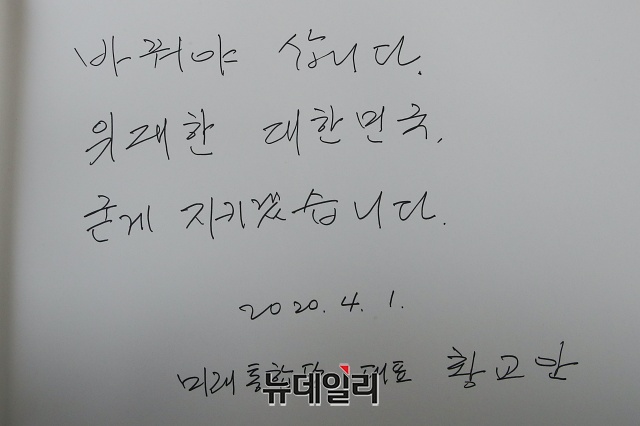 바꿔야 삽니다.
위대한 대한민국,
굳게 지키겠습니다.
2020. 4. 1.
미래통합당 대표 황교안
뉴데일리